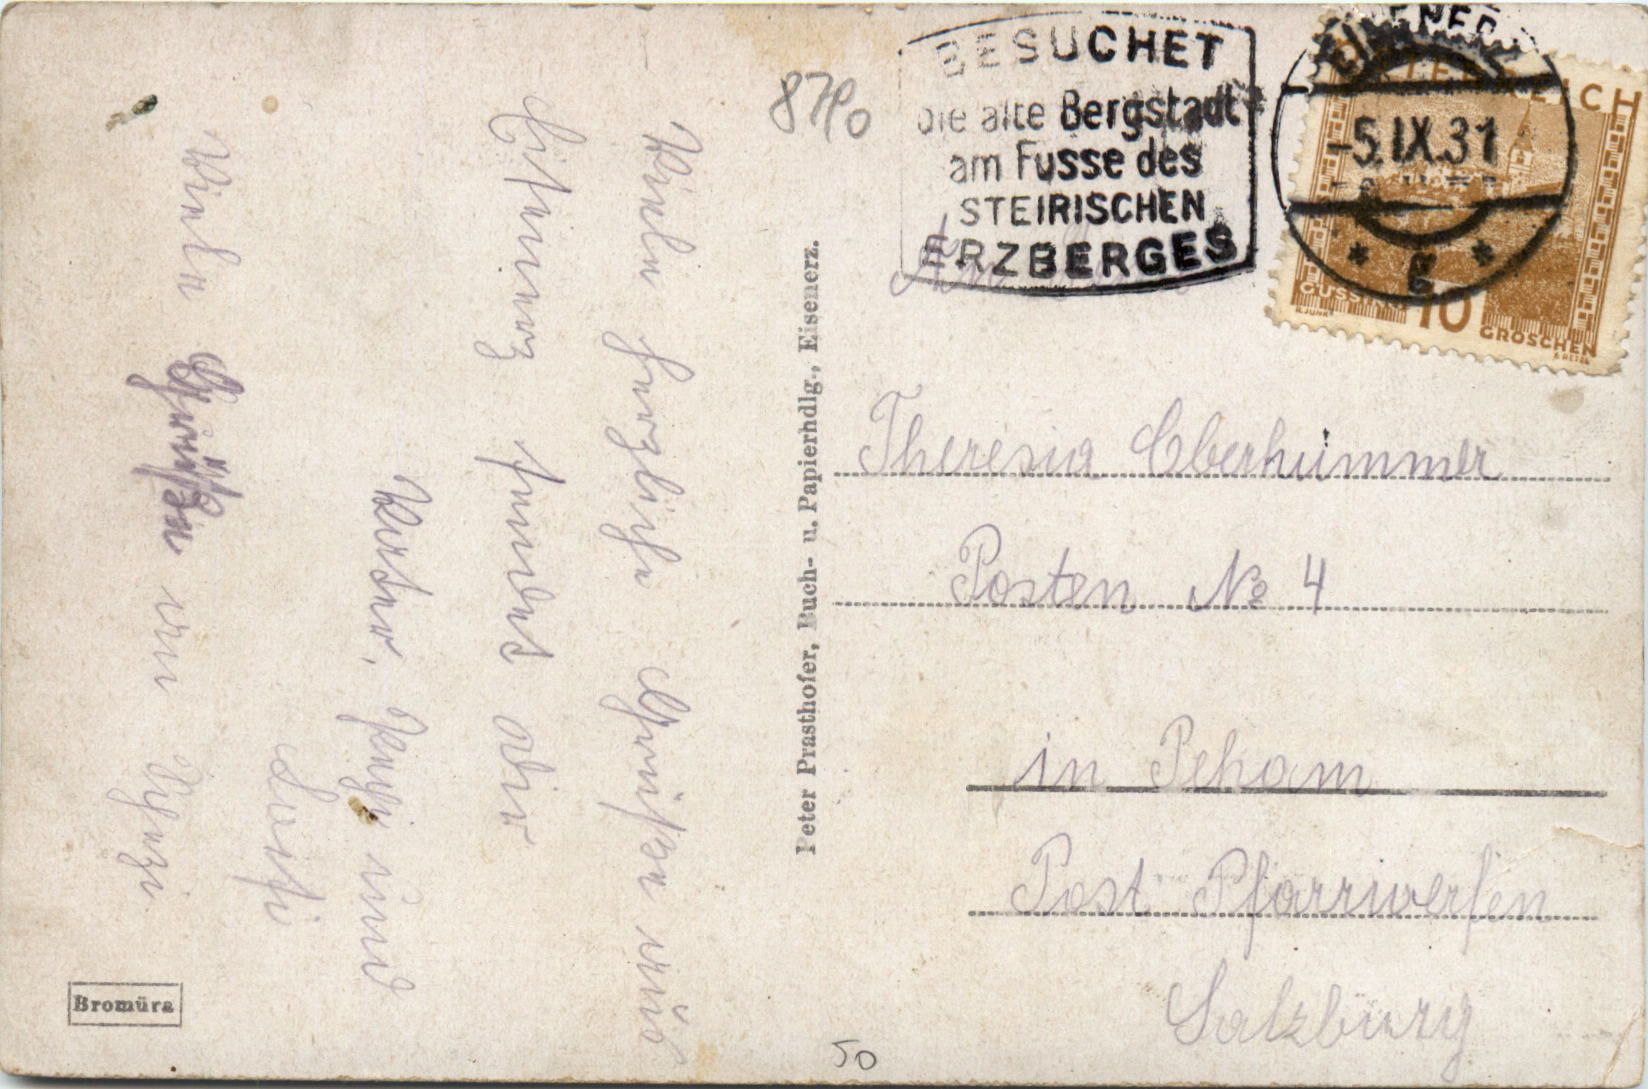 Viele herzliche Grüße aus
Eisenerz sendet dir
Vater, Peppi und
Luisi
Viele Grüße von
Peter Prasthofer, Buch- u. Papierhdlg., Eisenerz.
Bromüra
8790
BESUCHET
die alte Bergstadt
am Fusse des
STEIRISCHEN
ERZBERGES
EISENERZ
-5.IX.31
* g *
ÖSTERREICH
GÜSSING
10
GROSCHEN
R.JUNK
An
Theresia Oberhummer
Posten No 4
in Peham
Post Pfarrwerfen
Salzburg
50